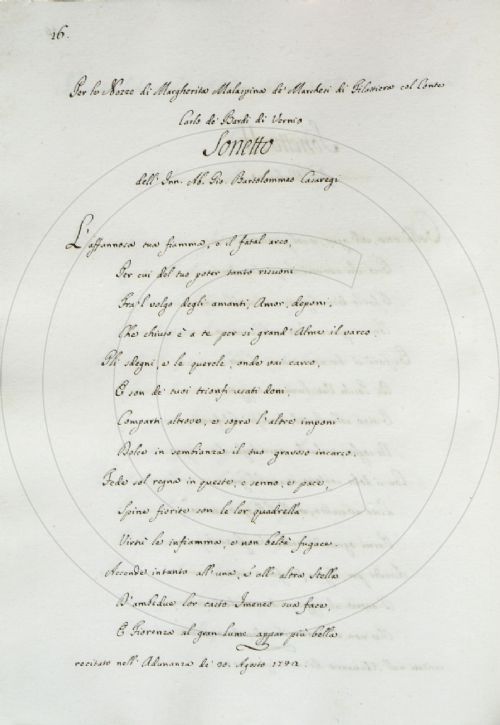 16.
Per le Nozze di Margherita Malaspina de' Marchesi di Filattiera col Conte
Carlo de' Bardi di Vernio
Sonetto
dell' Inn. Ab. Gio. Bartolommeo Casaregi
L'affannosa tua fiamma, e il fatal arco,
Per cui del tuo poter tanto risuoni
Fra'l volgo degli amanti, Amor, deponi,
Che chiuso è a te per sì grand' Alme il varco.
Gli sdegni, e le querele, onde vai carco,
E son de' tuoi trionfi usati doni,
Comparti altrove, e sopra l'altre imponi
Dolce in sembianza il tuo gravoso incarco.
Fede sol regna in queste, e senno, e pace,
Spine fiorite son le lor quadrella
Virtù le infiamma, e non beltà fugace.
Accende intanto all' una, e all' altra Stella
D'ambidue lor casto Imeneo sua face,
E Fiorenza al gran lume appar più bella
recitato nell' Adunanza de' 30. Agosto